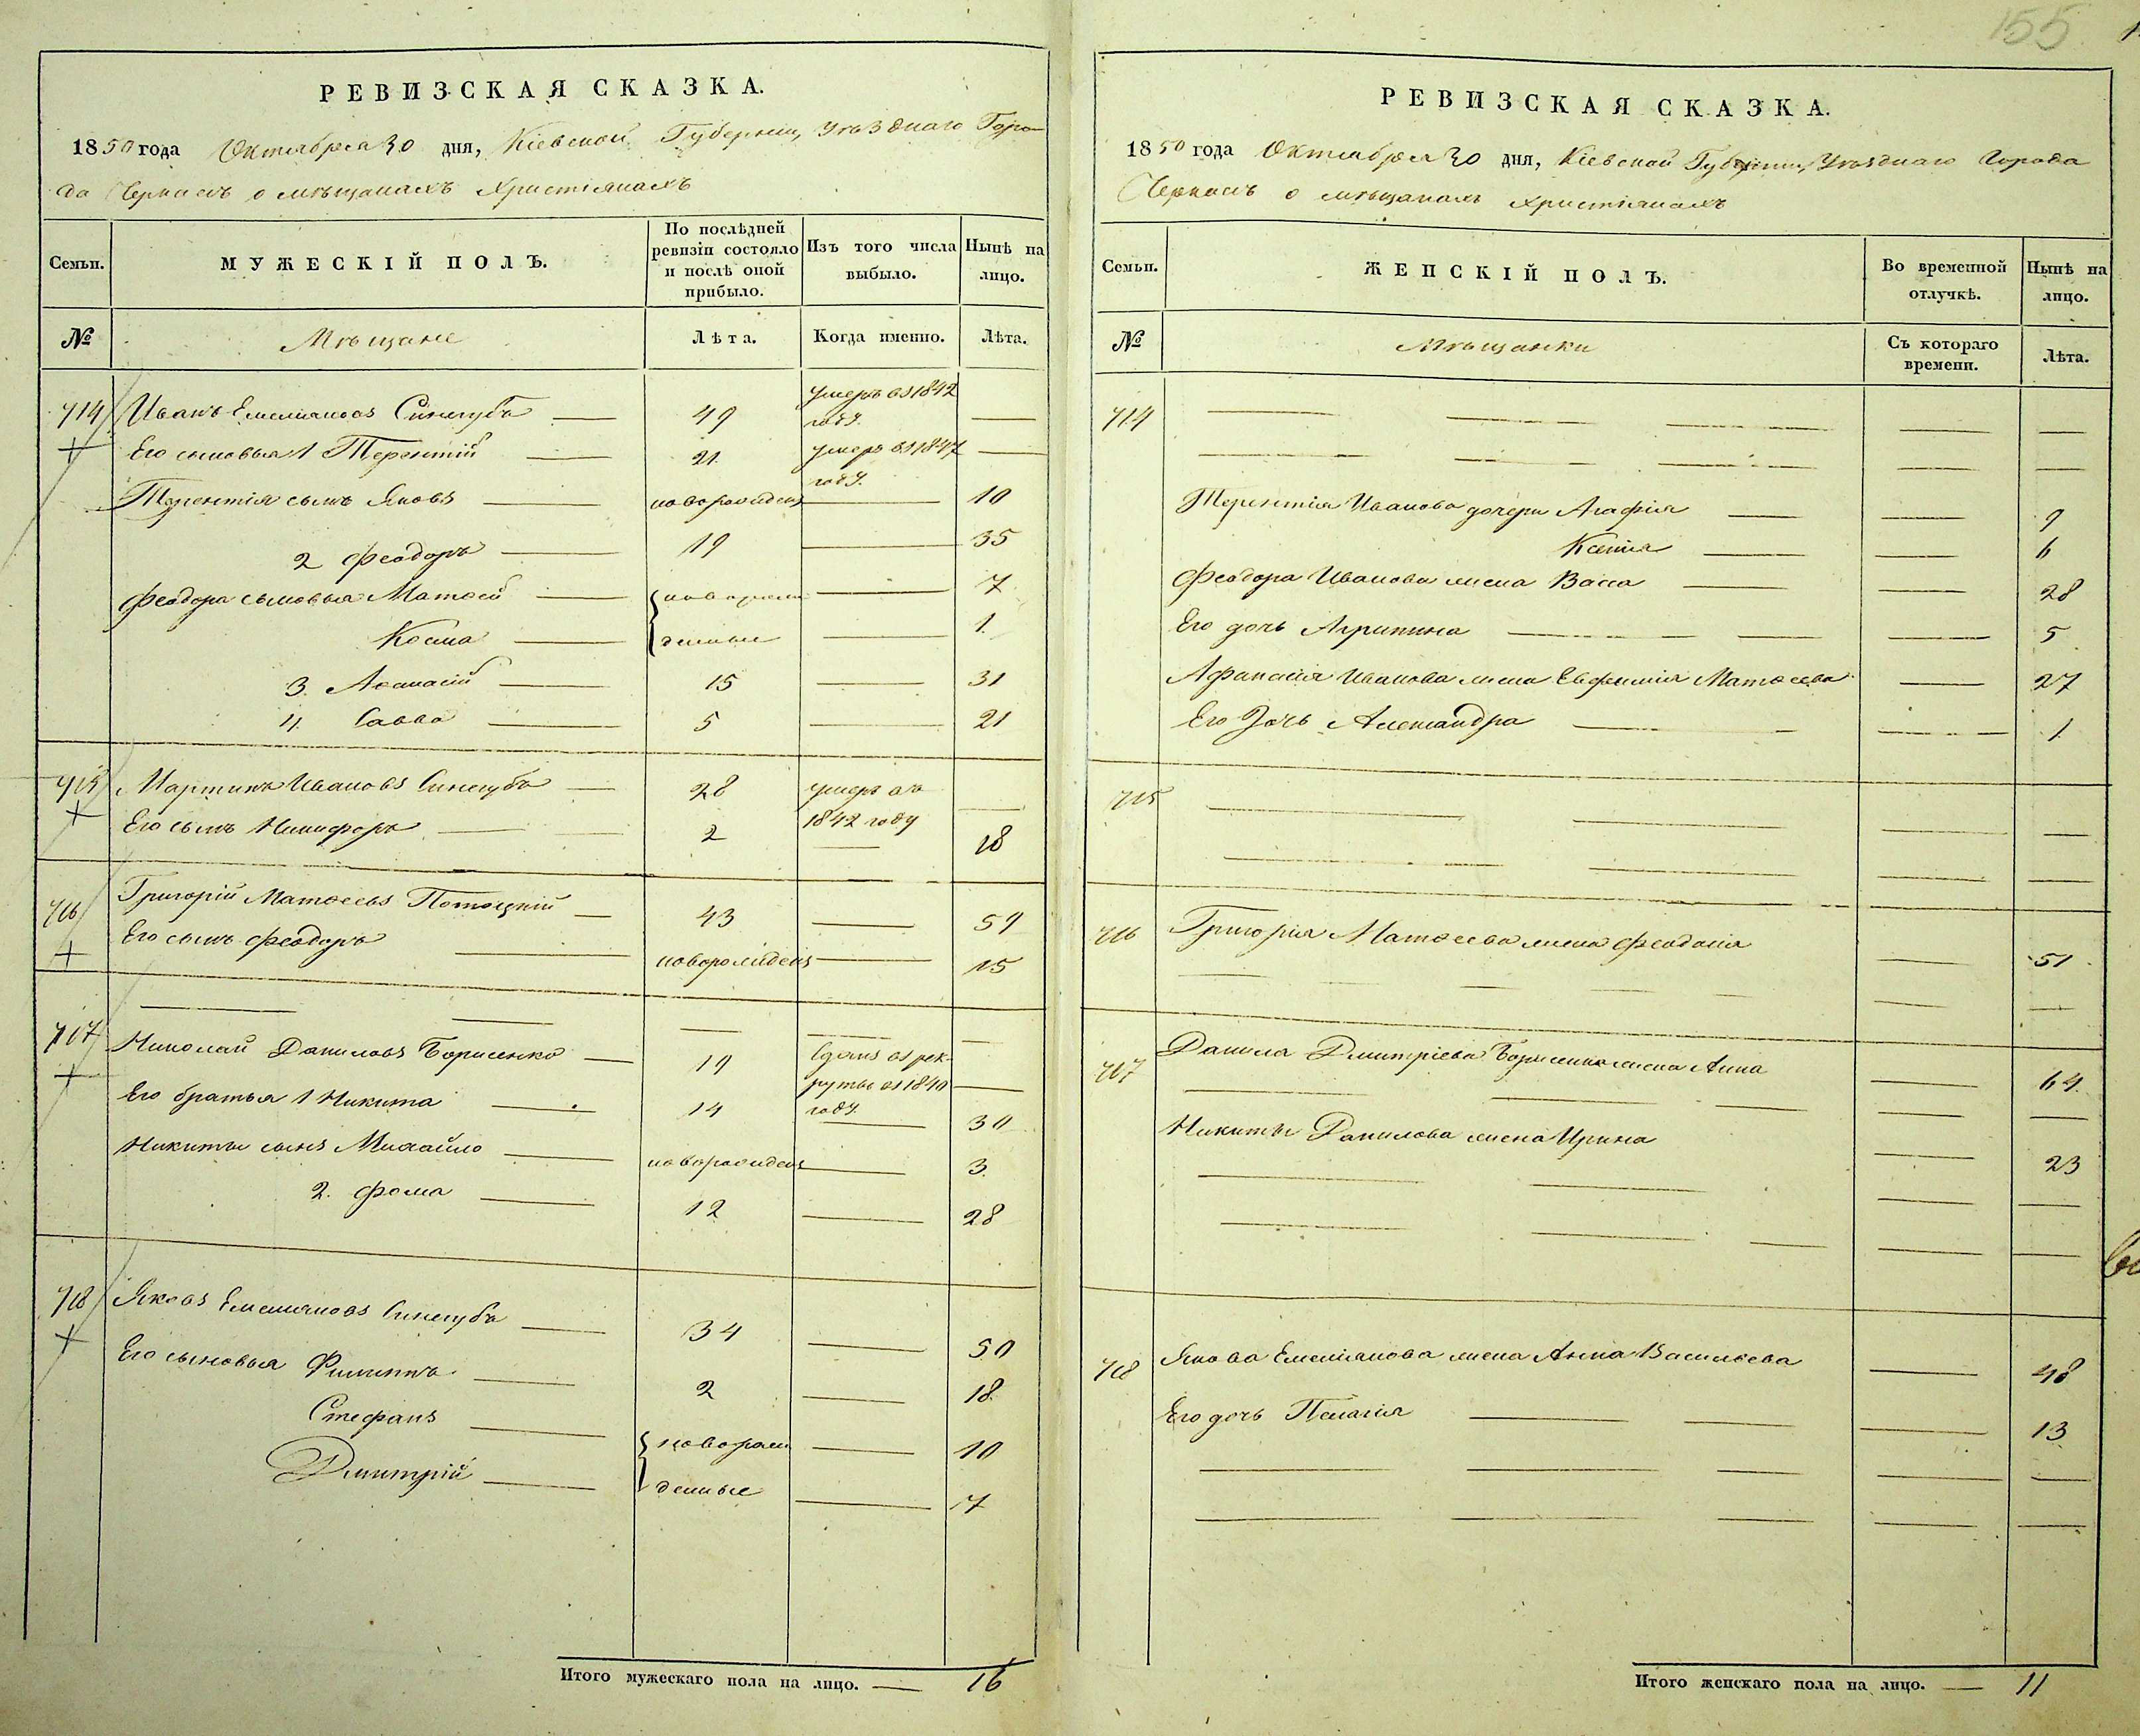 155
РЕВИЗСКАЯ СКАЗКА.
1850 года Октября 30 дня, Кіевской Губерніи, Уѣзднаго Горо-
да Черкасъ о мѣщанахъ Христіянахъ
Семьи.
МУЖЕСКІЙ ПОЛЪ.
По послѣдней ревизіи состояло и послѣ оной прибыло.
Изъ того числа выбыло.
Нынѣ на лицо.
№
Мѣщане
Лѣта.
Когда именно.
Лѣта.
714 Иванъ Емелиановъ Синегубъ — 49 умеръ въ 1842 году. —
Его сыновья 1 Терентій — 21. умеръ въ 1847 году. —
Терентія сынъ Яковъ — новорожденъ — 10
2 Феодоръ — 19 — 35
Феодора сыновья Матѳей — новорож — 7
Косма — денные — 1.
3. Аѳанасій — 15 — 31
4. Савва — 5 — 21
715 Мартинъ Ивановъ Синегубъ — 28 умеръ въ 1842 году —
Его сынъ Никифоръ — 2 — 18
716 Григорій Матѳеевъ Потоцкій — 43 — 59
Его сынъ Феодоръ — новорожденъ — 15
717 — — — — —
Николай Даниловъ Борисенко — 19 Сданъ въ рек-
руты въ 1840 году. —
Его братья 1 Никита — 14 — 30
Никиты сынъ Михайло — новорожденъ — 3.
2. Фома — 12 — 28
718 Яковъ Емелиановъ Синегубъ — 34 — 50
Его сыновья Филиппъ — 2 — 18.
Стефанъ — новорож — 10
Дмитрій — денные — 7
Итого мужескаго пола на лицо. — 16
РЕВИЗСКАЯ СКАЗКА.
1850 года Октября 30 дня, Кіевской Губерніи, Уѣзднаго Города
Черкасъ о мѣщанахъ христіянахъ
Семьи.
ЖЕНСКІЙ ПОЛЪ.
Во временной отлучкѣ.
Нынѣ на лицо.
№
Мѣщанки
Съ котораго времени.
Лѣта.
714 — — — — —
— — — — —
Терентія Иванова дочери Агафія — — 9
Ксенія — — 6
Феодора Иванова жена Васса — — 28
Его дочь Агрипина — — 5
Афанасія Иванова жена Евфимія Матѳеева — 27
Его Дочь Александра — — 1
715 — — — —
— — — —
716 Григорія Матѳеева жена Феодосія — 51
— — — — — —
717 Данила Дмитріева Борисенка жена Анна — 64.
— — — — —
Никиты Данилова жена Ирина — 23
— — — —
— — — — —
718 Якова Емелианова жена Анна Васильева — 48
Его дочь Пелагія — — — 13
— — — — —
— — — — —
Итого женскаго пола на лицо. — 11